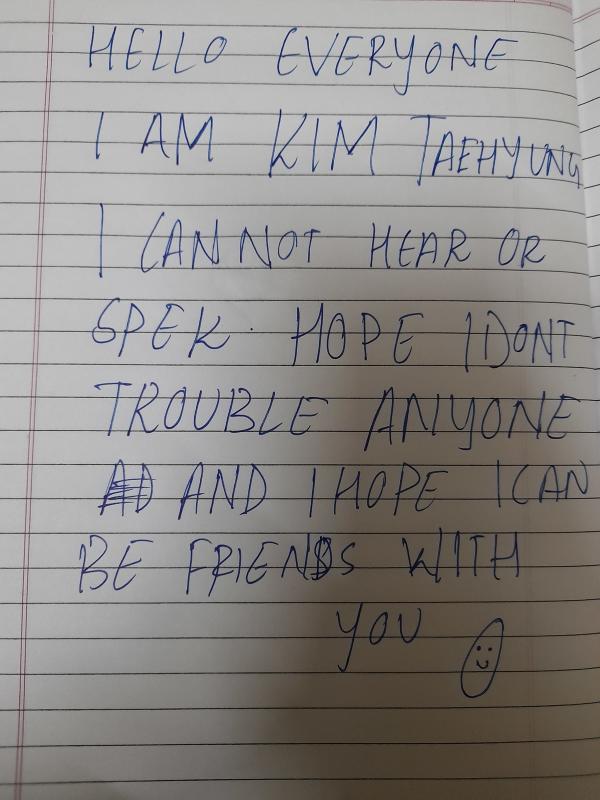 HELLO EVERYONE
I AM KIM TAEHYUNG
I CAN NOT HEAR OR
SPEK. HOPE I DONT
TROUBLE ANYONE
AND I HOPE I CAN
BE FRIENDS WITH
YOU